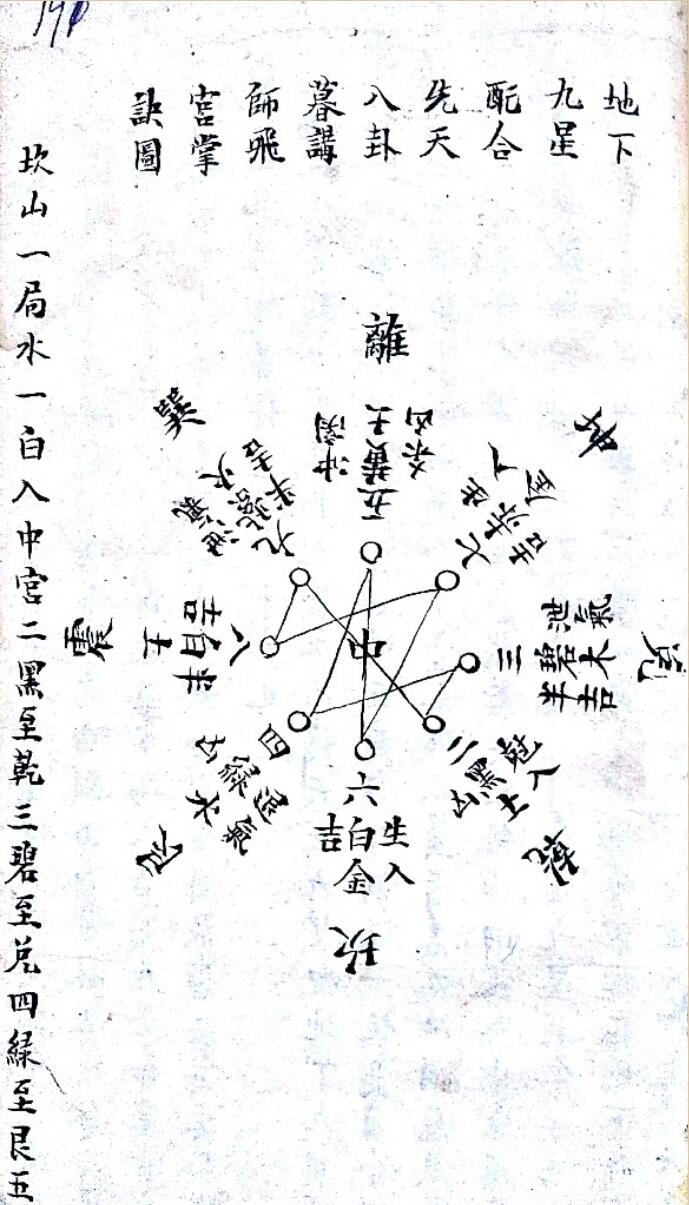 地下
九星
配合
先天
八卦
暮講
師飛
宮掌
訣圖
離
五黃土
冲関
坤
七赤
兌
三碧木
泄氣
半吉
乾
二黑土
凶
坎
六白金
生入
吉
艮
四緑木
退氣
凶
震
八白土
半吉
巽
九紫火
半吉
泄氣
中
坎山一局水一白入中宮二黑至乾三碧至兌四緑至艮五